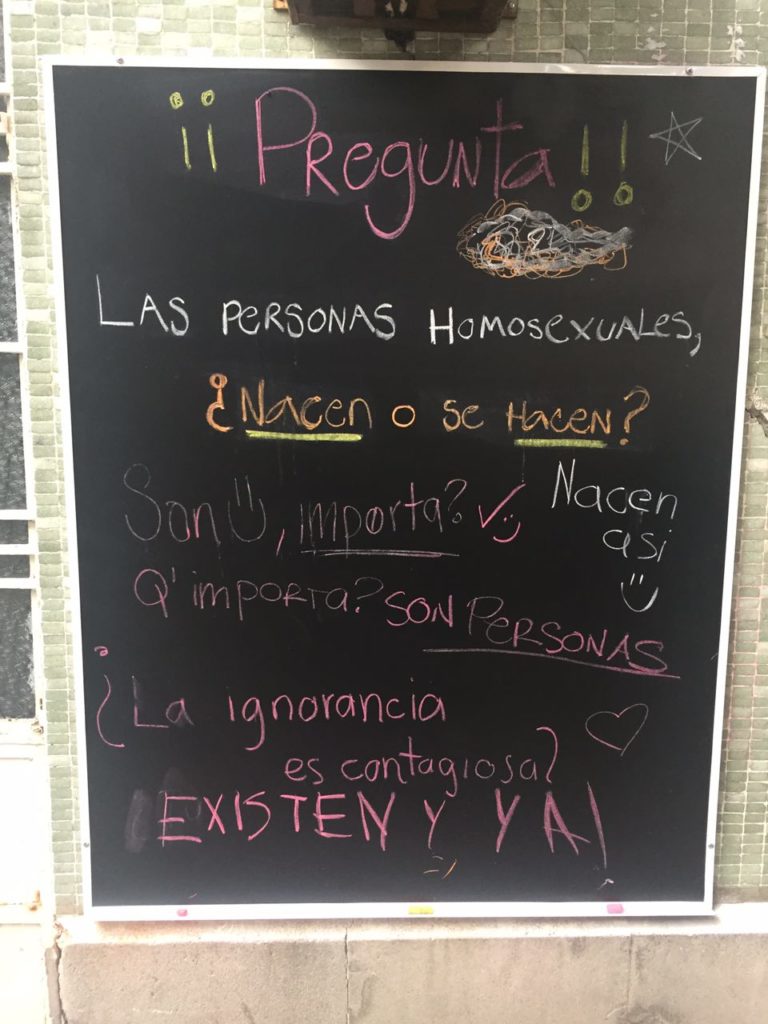 ¡¡Pregunta!!
LAS PERSONAS HOMOSEXUALES,
¿NACEN O SE HACEN?
Son, importa?
Nacen
asi
Q' IMPORTA? SON PERSONAS
¿La ignorancia
es contagiosa?
¡EXISTEN Y YA!